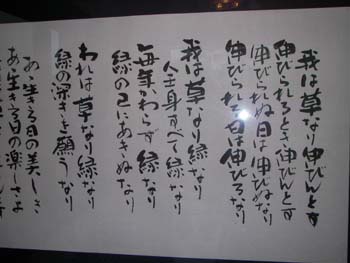 我は草なり伸びんとす
伸びられるとき伸びんとす
伸びられぬ日は伸びぬなり
伸びられる日は伸びるなり
我は草なり緑なり
全身すべて緑なり
毎年かわらず緑なり
緑の己にあきぬなり
われは草なり緑なり
緑の深きを願うなり
あゝ生きる日の美しき
あゝ生きる日の楽しさよ